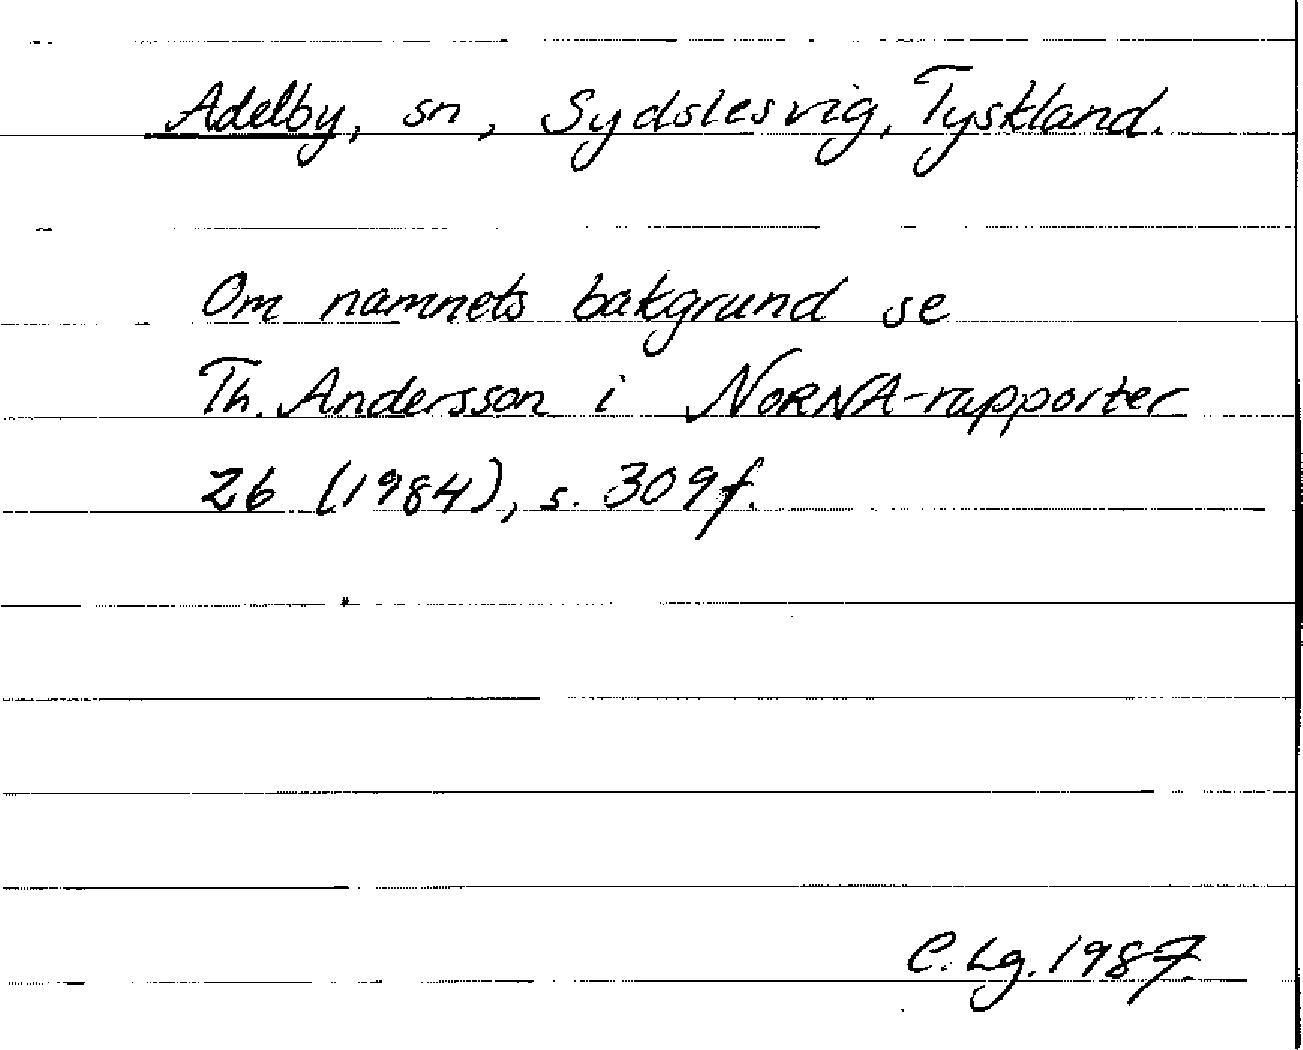 Adelby, sn, Sydslesvig, Tyskland.
Om namnets bakgrund se
Th. Andersson i NORNA-rapporter
26 (1984), s. 309f.
C. Lg. 1987